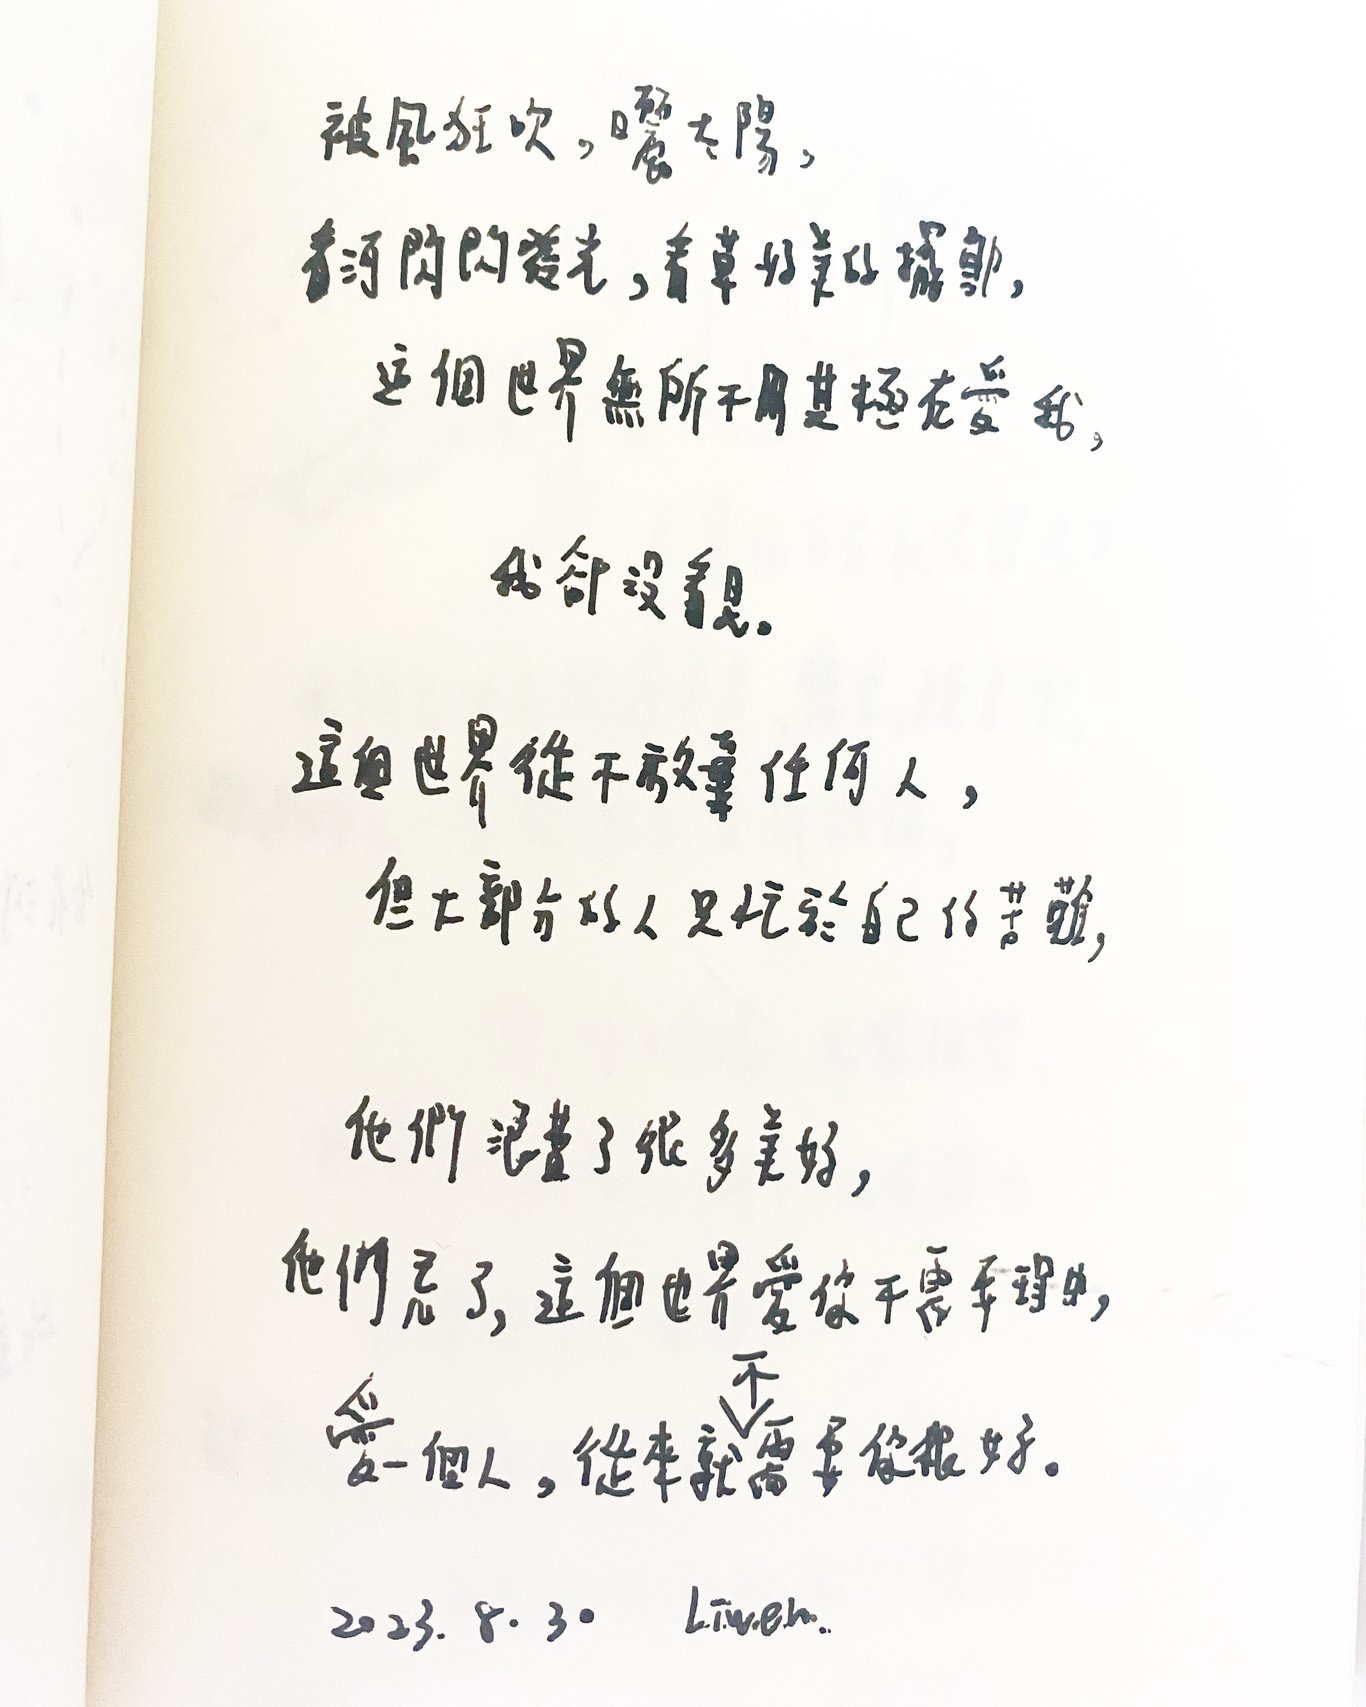 被風狂吹，曬太陽，
看河閃閃發光，看草好美的擺動，
這個世界無所不用其極在愛我，
我卻沒看見。
這個世界從不放棄任何人，
但大部分的人只忙於自己的苦難，
他們浪費了很多美好，
他們忘了，這個世界愛你不需要理由，
不
愛一個人，從來就需要你很好。
2023.8.30 Liwen..